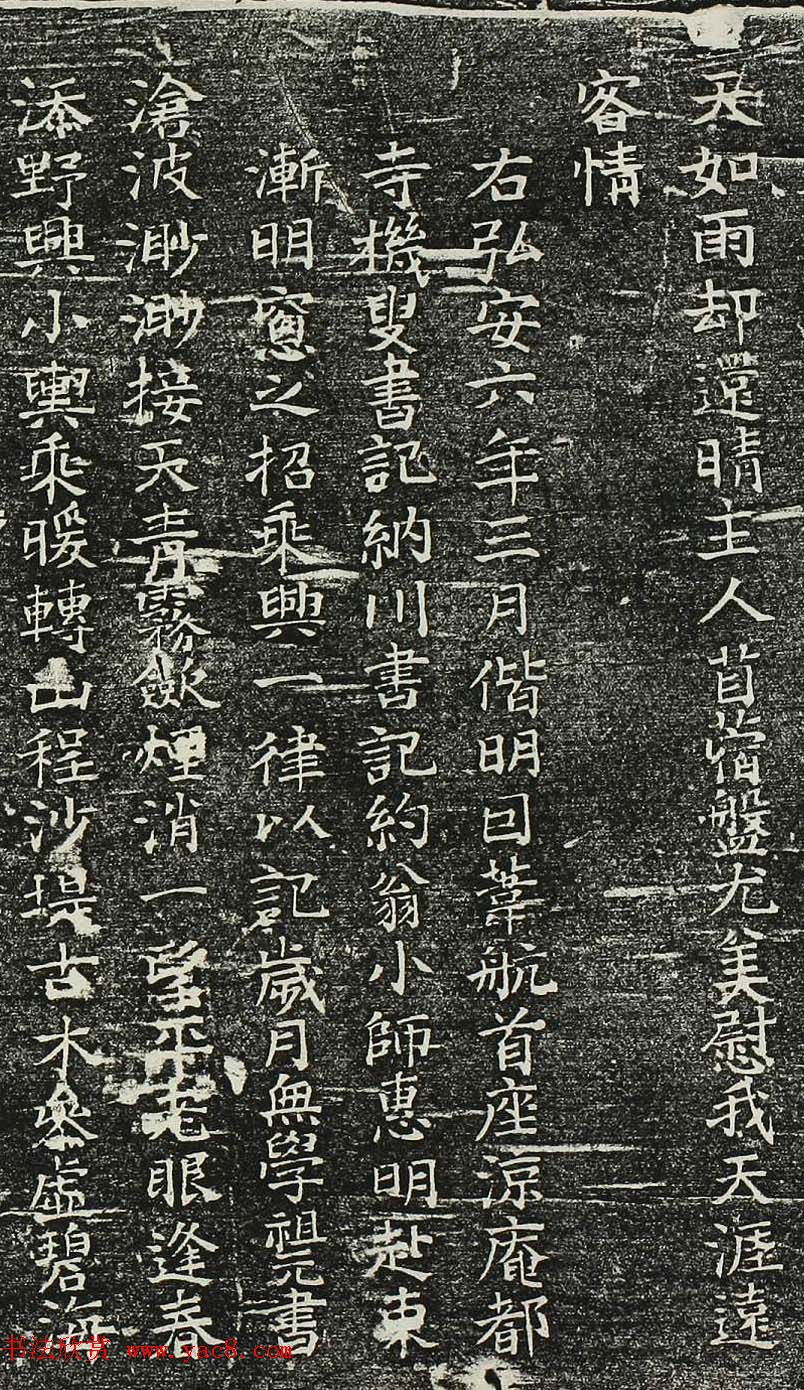 天如雨却還晴主人苜蓿盤尤美慰我天涯遠
客情
右弘安六年三月偕明囙葦航首座涼庵都
寺機叟書記納川書記約翁小師惠明赴東
漸明窻之招乘興一律以記歲月無學祖元書
滄波渺渺接天青霧歛煙消一望平老眼逢春
添野興小輿乘暖轉山程沙堤古木參虛碧海
书法欣赏 www.yac8.com